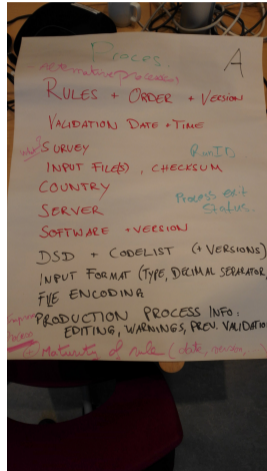 Proces.
A
- alternative processes
RULES + ORDER + VERSION
VALIDATION DATE + TIME
SURVEY
RunID
INPUT FILE(S), CHECKSUM
COUNTRY
Process exit
Status.
SERVER
SOFTWARE + VERSION
DSD + CODELIST (+ VERSIONS)
INPUT FORMAT (TYPE, DECIMAL SEPARATOR,
FILE ENCODING
PRODUCTION PROCESS INFO:
EDITING, WARNINGS, PREV. VALIDATIO
Maturity of rule (date,